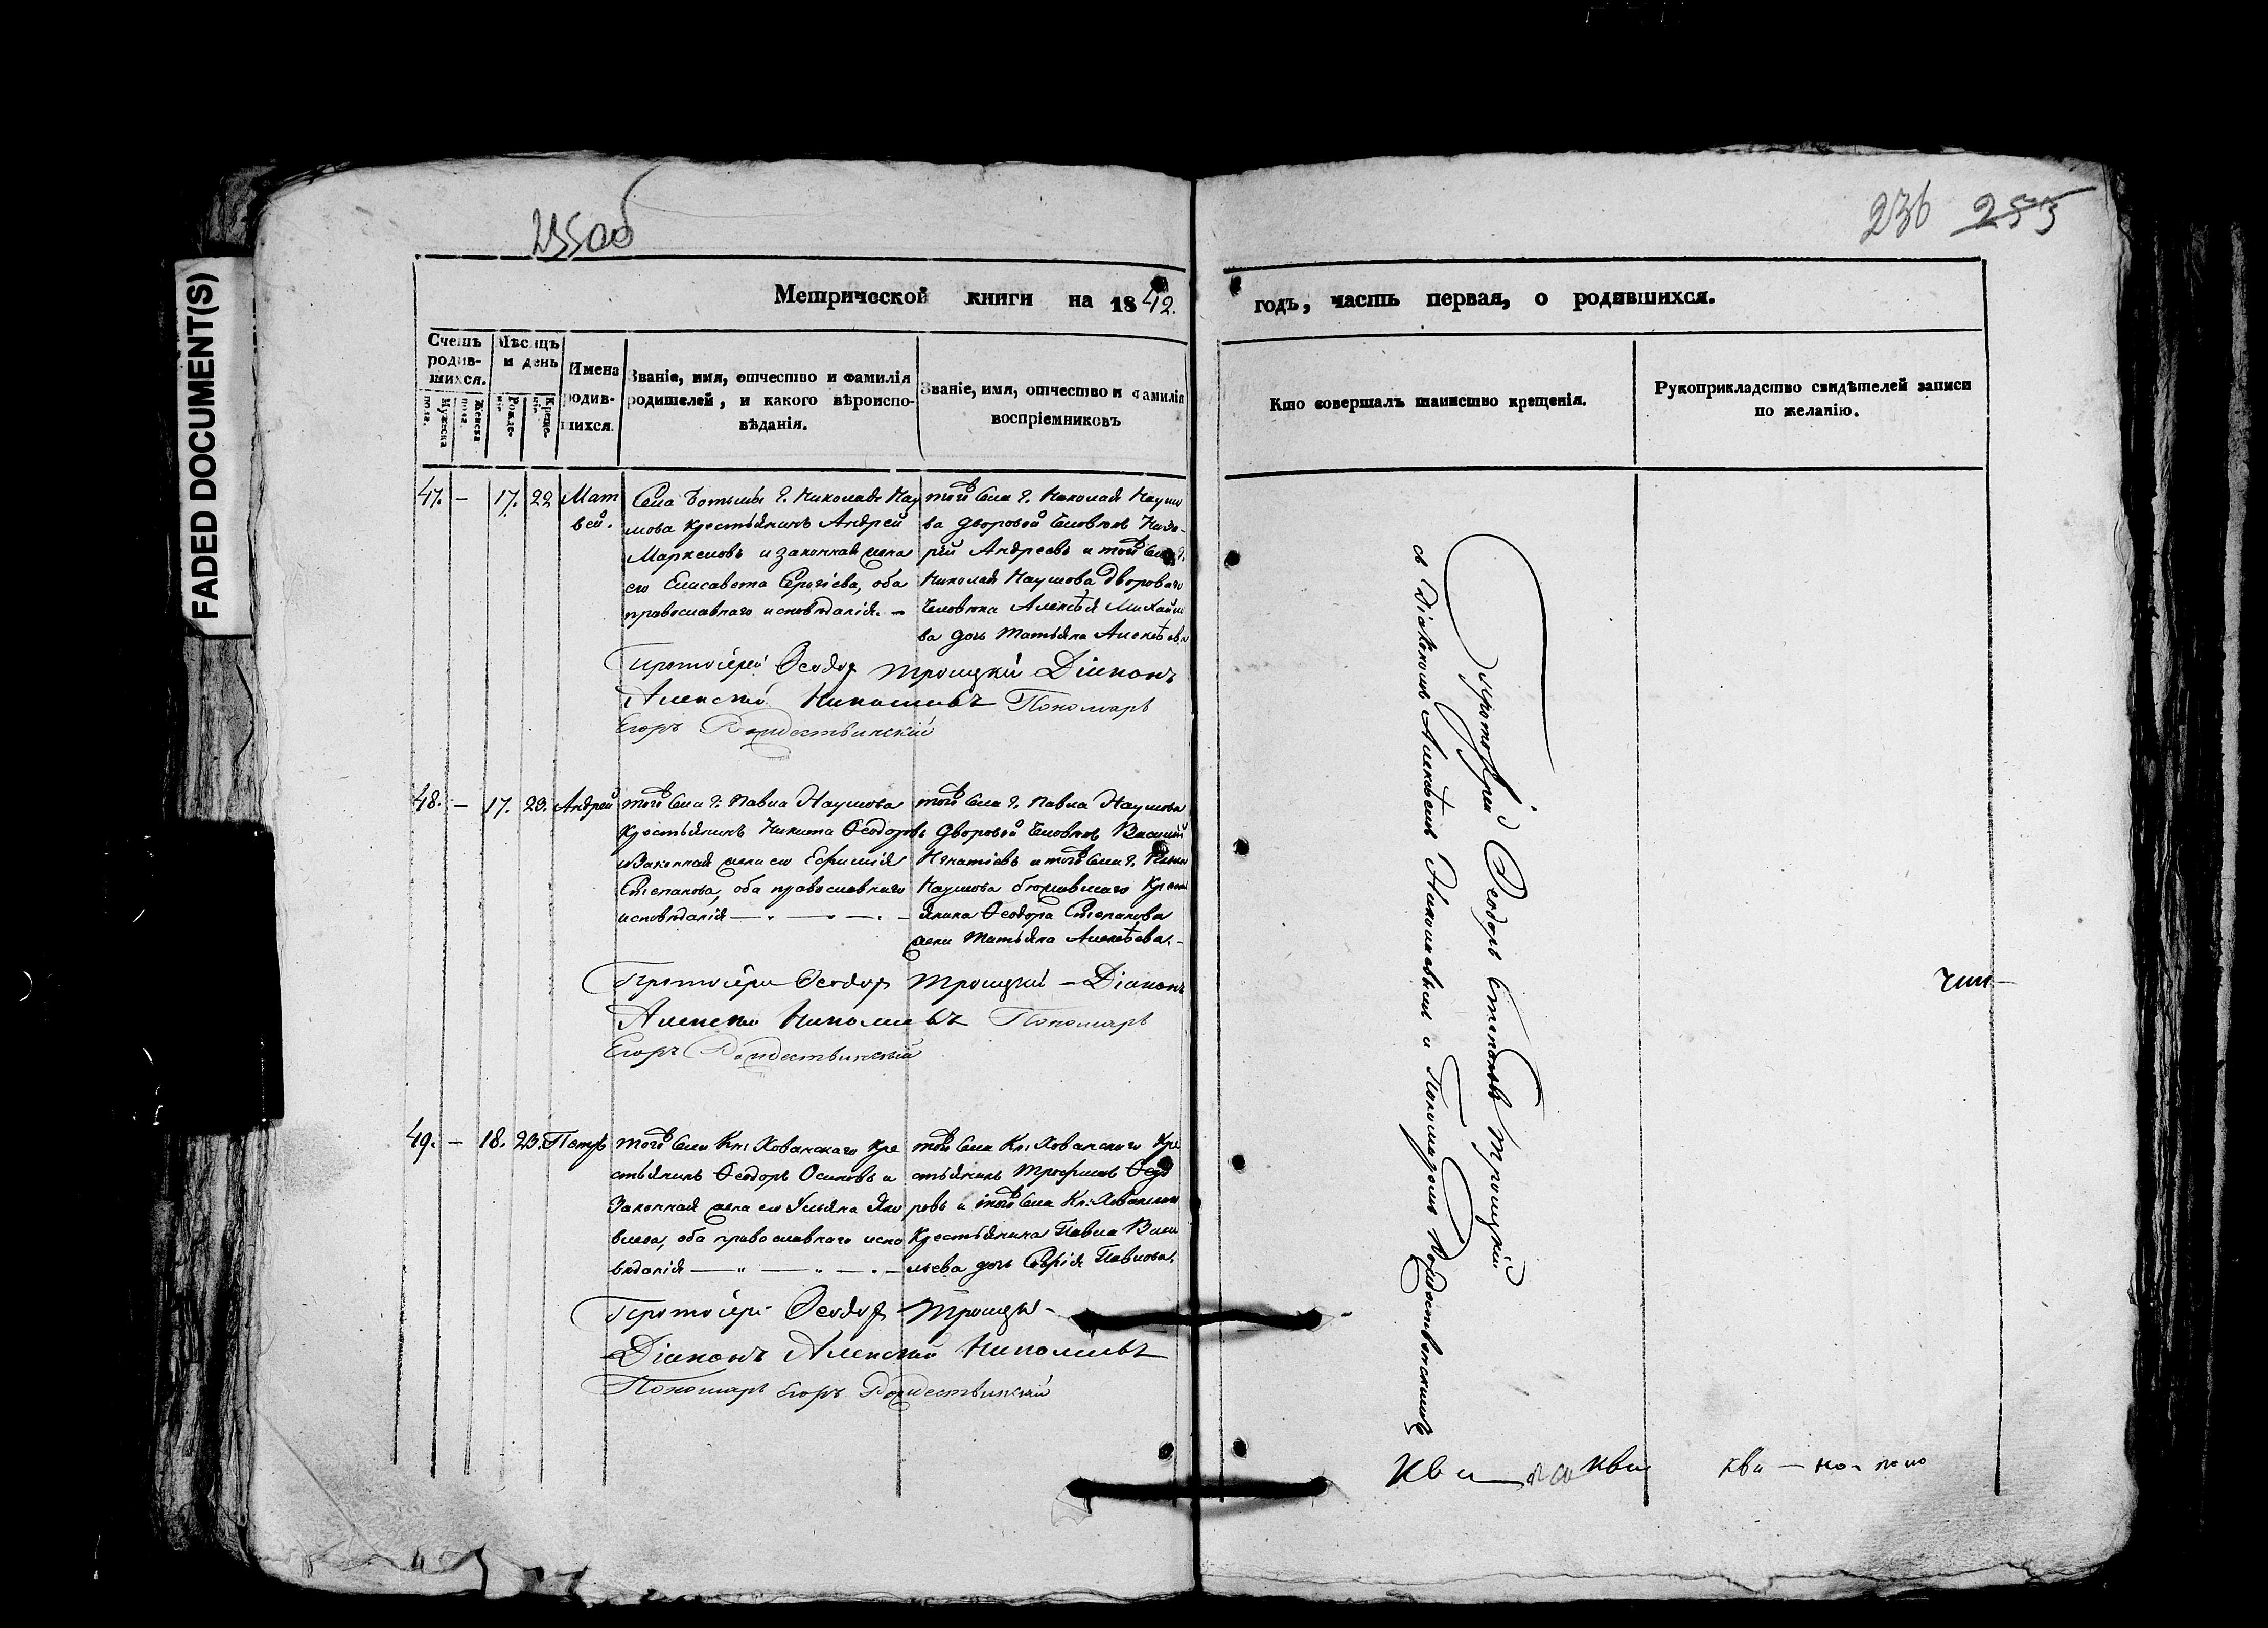 FADED DOCUMENT(S)
235об
236 255
Метрической книги на 1842. годъ, часть первая, о родившихся.
Счетъ родив-шихся.
Мужеска пола.
Женска пола.
Мѣсяцъ и день
Рожде-нія
Креще-нія
Имена родив-шихся.
Званіе, имя, отчество и фамилія
родителей, и какого вѣроиспо-
вѣданія.
Званіе, имя, отчество и фамилія
воспріемниковъ
Кто совершалъ таинство крещенія.
Рукоприкладство свидѣтелей записи
по желанію.
47. — 17. 22 Мат
вей.
Села Ботьмы г. Николая Нау
мова крестьянинъ Андрей
Маркеловъ и законная жена
его Елисавета Сергіева, оба
православнаго исповѣданія. —
тогожъ села г. Николая Наумо
ва дворовой человѣкъ
Андреевъ и тогожъ села г.
Николая Наумова двороваго
человѣка Алексѣя Михайло
ва дочь Татьяна Алексѣева
Протоіерей Ѳеодоръ Троицкій Діаконъ
Алексѣй Николаевъ Пономарь
Егоръ Рождественскій
48. — 17. 23. Андрей
тогожъ села г. Павла Наумова
крестьянинъ Никита Ѳеодоровъ
и законная жена его Ефимія
Степанова, оба православнаго
исповѣданія — — —
тогожъ села г. Павла Наумова
дворовой человѣкъ Василій
Игнатіевъ и тогожъ села г.
Наумова крест
янина Ѳеодора Степанова
жена Татьяна Алексѣева. —
Протоіерей Ѳеодоръ Троицкій — Діаконъ
Алексѣй Николаевъ Пономарь
Егоръ Рождественскій
49. — 18. 23. Петръ
тогожъ села Кн: Хованскаго кре
стьянинъ Ѳеодоръ Осиповъ и
законная жена его Ульяна Яко
влева, оба православнаго испо
вѣданія — " — " — . —
тогожъ села Кн: Хованскаго кре
стьянинъ Трофимъ Ѳедо
ровъ и тогожъ села Кн: Хованскаго
крестьянина Павла Васи
льева дочь Павлова.
Протоіерей Ѳеодоръ Троицкі
Діаконъ Алексѣй Николаевъ
Пономарь Егоръ Рождественскій
Протоіерей Ѳеодоръ Степановъ Троицкій
съ Діакономъ Алексѣемъ Николаевымъ и Пономаремъ Рождественскимъ